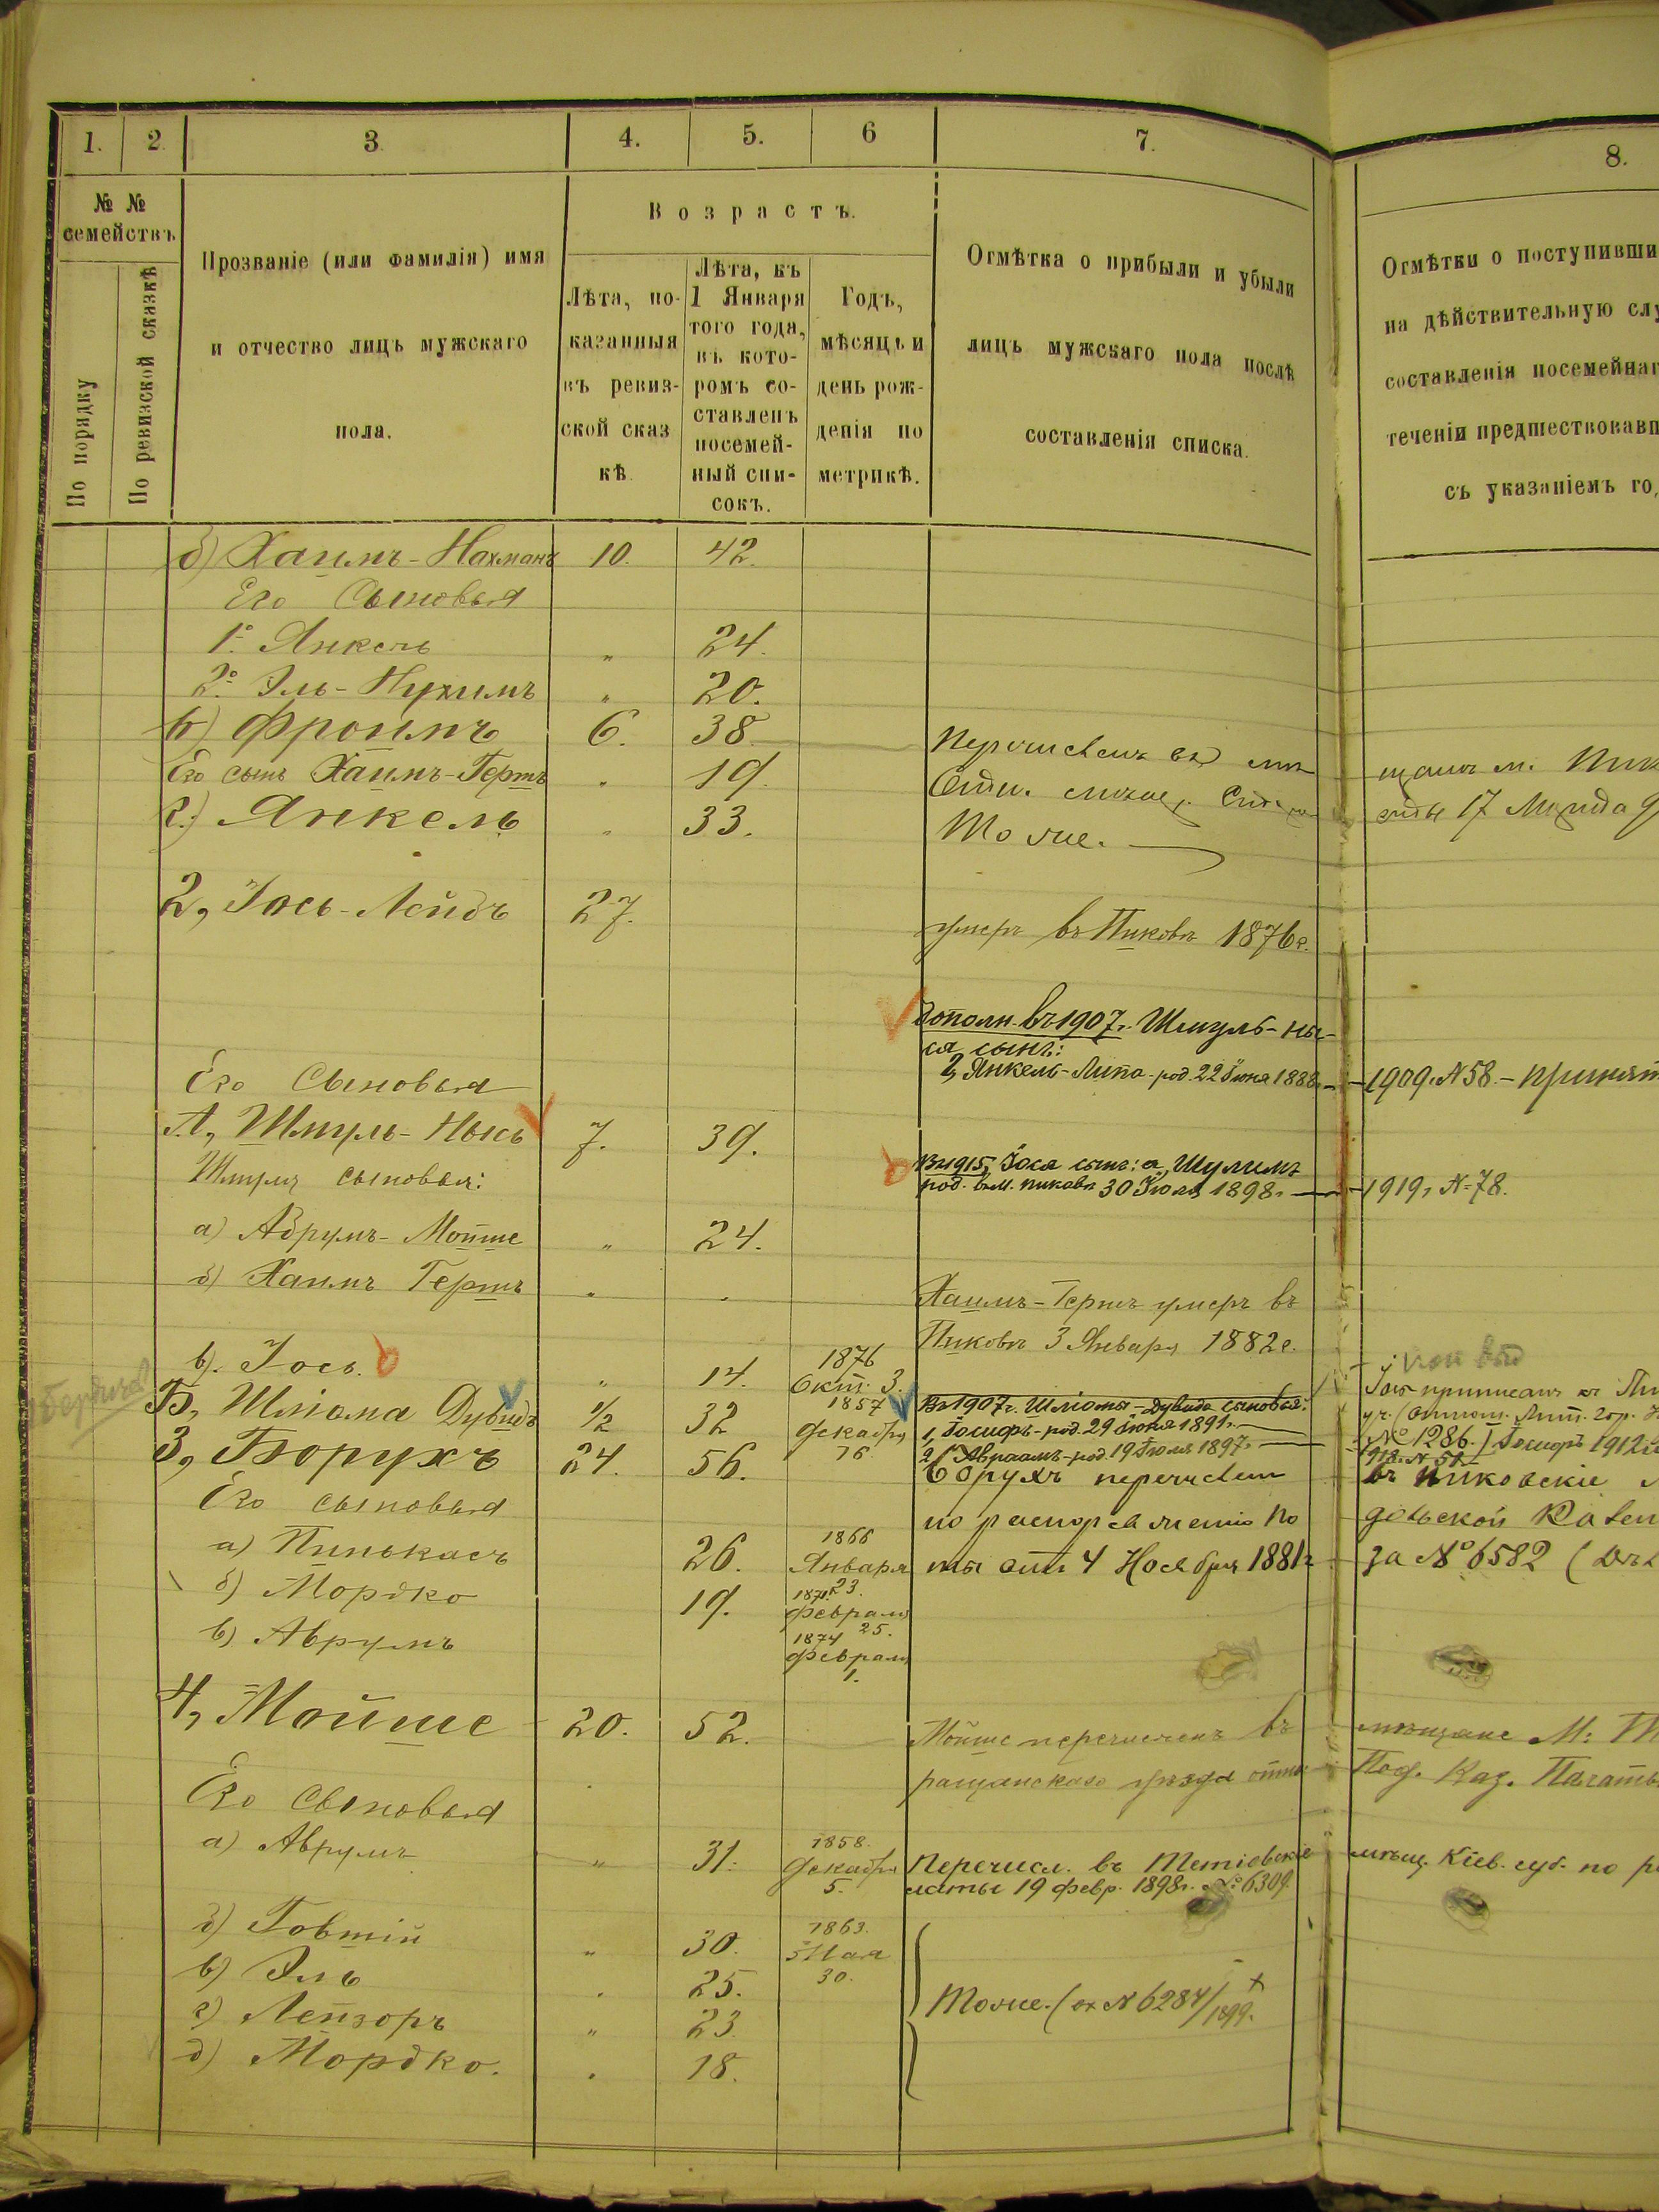 1. 2. 3. 4. 5. 6 7. 8.
№ №
семействъ.
По порядку
По ревизской сказкѣ
Прозваніе (или фамилія) имя
и отчество лицъ мужскаго
пола.
Возрастъ.
Лѣта, по-
казанныя
въ ревиз-
ской сказ
кѣ.
Лѣта, къ
1 Января
того года,
въ кото-
ромъ со-
ставленъ
посемей-
ный спи-
сокъ.
Годъ,
мѣсяцъ и
день рож-
денія по
метрикѣ.
Отмѣтка о прибыли и убыли
лицъ мужскаго пола послѣ
составленія списка.
Отмѣтки о поступивши
на дѣйствительную слу
составленія посемейнаг
теченіи предшествовавш
съ указаніемъ го
б) Хаимъ-Нахманъ 10. 42.
Его Сыновья
1. Янкель " 24.
2. Эль-Нухимъ " 20.
в) Фроимъ 6. 38
Его сынъ Хаимъ-Гершъ " 19.
г) Янкель " 33. Тоже.
17
2, Іось-Лейбъ 27. умеръ въ Пиковѣ 1876 г.
Дополн. въ 1907 г. Шмуль-Ны-
ся сынъ:
2, Янкель-Липа-род. 22 Іюня 1888 1909. N 58.- принят
Его Сыновья
А, Шмуль-Нысь 7. 39.
Въ 1915, Іося сынъ: а, Шулимъ
Шмуля сыновья: род. въ м. Пиковѣ 30 Іюля 1898 г. 1919, N=78.
а) Абрумъ-Мойше " 24.
б) Хаимъ Гершъ " " Хаимъ-Гершъ умеръ въ
Пиковѣ 3 Января 1882 г.
в). Іось. " 14. 1876 Окт. 3.
Іось приписанъ къ
Б, Шліома Дувидъ 1/2 32 1857 Декабря 16
Въ 1907 г. Шліомы-Дувида сыновья:
1, Іосифъ-род. 29 Іюня 1891 г.
2, Авраамъ-род. 19 Іюля 1897 г.
№ 1286.) Іосифъ 1912
3, Борухъ 24. 56. Борухъ перечислен въ Пиковскіе
Его сыновья по распоряженію По дольской Казен
а) Пинькасъ 26. 1866 Января 23. ты отъ 4 Ноября 1881 г за № 6582
б) Мордко 19. 1871 Февраля 25.
в) Аврумъ 1874 Февраля 1.
4, Мойше 20. 52. Мойше перечисленъ въ мѣщане М:
ращанскаго уѣзда Под. Каз. Палаты
Его Сыновья
а) Аврумъ " 31. 1858. Декабря 5. Перечисл. въ Тетіевскіе мѣщ. Кіев. губ. по р
латы 19 февр. 1898 г. № 6309.
б) Говшій " 30. 1863. Мая 30.
в) Эль " 25.
Тоже. (
N 6284/1899.
г) Лейзоръ " 23.
д) Мордко. " 18.